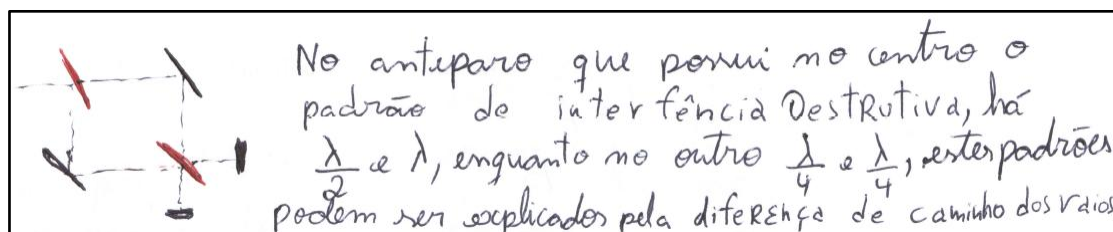 No anteparo que possui no centro o
padrão de interfência Destrutiva, há
λ/2 e λ, enquanto no outro λ/4 e λ/4, estes padrões
podem ser explicados pela diferença de caminho dos raios